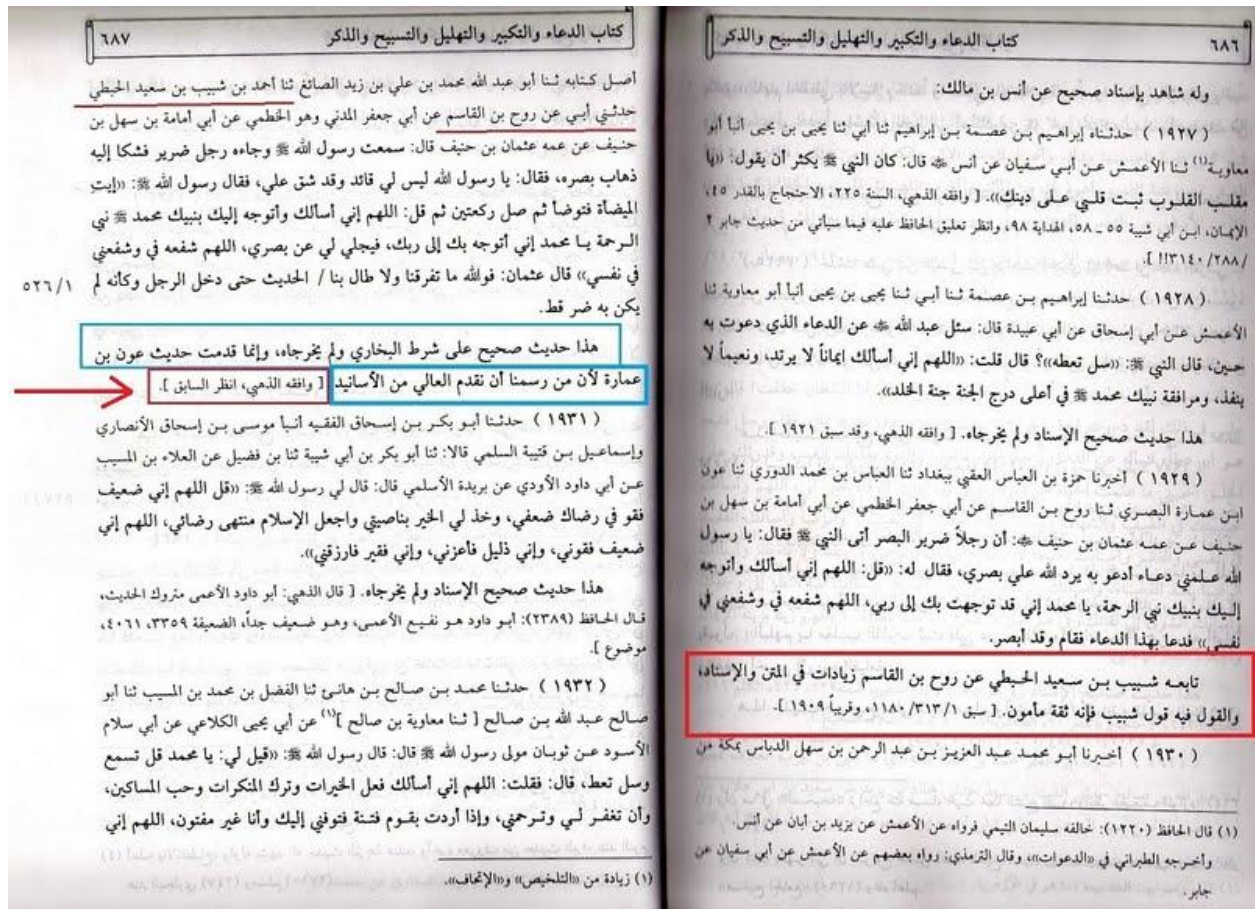 ٦٨٦ كتاب الدعاء والتكبير والتهليل والتسبيح والذكر
وله شاهد بإسناد صحيح عن أنس بن مالك:
( ١٩٢٧ ) حدثناه إبراهيم بن عصمة بن إبراهيم ثنا أبي ثنا يحيى بن يحيى أنبأ أبو
معاوية(١) ثنا الأعمش عن أبي سفيان عن أنس ﷺ قال: كان النبي ﷺ يكثر أن يقول: «يا
مقلب القلوب ثبت قلبي على دينك». [ وافقه الذهبي، السنة ٢٢٥، الاحتجاج بالقدر ٤٥،
الإيمان، ابن أبي شيبة ٥٥ ـ ٥٨، الهداية ٩٨، وانظر تعليق الحافظ عليه فيما سيأتي من حديث جابر ٢
/٢٨٨/ ٣١٤٠!! ].
( ١٩٢٨ ) حدثنا إبراهيم بن عصمة ثنا أبي ثنا يحيى بن يحيى أنبأ أبو معاوية ثنا
الأعمش عن أبي إسحاق عن أبي عبيدة قال: سئل عبد الله ﷺ عن الدعاء الذي دعوت به
حين، قال النبي ﷺ: «سل تعطه»؟ قال قلت: «اللهم إني أسألك إيماناً لا يرتد، ونعيماً لا
ينفذ، ومرافقة نبيك محمد ﷺ في أعلى درج الجنة جنة الخلد».
هذا حديث صحيح الإسناد ولم يخرجاه. [ وافقه الذهبي، وقد سبق ١٩٢١ ].
( ١٩٢٩ ) أخبرنا حمزة بن العباس العقبي ببغداد ثنا العباس بن محمد الدوري ثنا عون
ابن عمارة البصري ثنا روح بن القاسم عن أبي جعفر الخطمي عن أبي أمامة بن سهل بن
حنيف عن عمه عثمان بن حنيف ﷺ: أن رجلاً ضرير البصر أتى النبي ﷺ فقال: يا رسول
الله علمني دعاء أدعو به يرد الله علي بصري، فقال له: «قل: اللهم إني أسألك وأتوجه
إليك بنبيك نبي الرحمة، يا محمد إني قد توجهت بك إلى ربي، اللهم شفعه في وشفعني في
نفسي» فدعا بهذا الدعاء فقام وقد أبصر.
تابعه شبيب بن سعيد الحبطي عن روح بن القاسم زيادات في المتن والإسناد،
والقول فيه قول شبيب فإنه ثقة مأمون. [ سبق ١١٨٠/٣١٣/١، وقريباً ١٩٠٩ ].
( ١٩٣٠ ) أخبرنا أبو محمد عبد العزيز بن عبد الرحمن بن سهل الدباس بمكة من
(١) قال الحافظ (١٢٢٠): خالفه سليمان التيمي فرواه عن الأعمش عن يزيد بن أبان عن أنس.
وأخرجه الطبراني في «الدعوات»، وقال الترمذي: رواه بعضهم عن الأعمش عن أبي سفيان عن
جابر.
كتاب الدعاء والتكبير والتهليل والتسبيح والذكر ٦٨٧
أصل كتابه ثنا أبو عبد الله محمد بن علي بن زيد الصائغ ثنا أحمد بن شبيب بن سعيد الحبطي
حدثني أبي عن روح بن القاسم عن أبي جعفر المدني وهو الخطمي عن أبي أمامة بن سهل بن
حنيف عن عمه عثمان بن حنيف قال: سمعت رسول الله ﷺ وجاءه رجل ضرير فشكا إليه
ذهاب بصره، فقال: يا رسول الله ليس لي قائد وقد شق علي، فقال رسول الله ﷺ: «إيت
الميضأة فتوضأ ثم صل ركعتين ثم قل: اللهم إني أسألك وأتوجه إليك بنبيك محمد ﷺ نبي
الرحمة يا محمد إني أتوجه بك إلى ربك، فيجلي لي عن بصري، اللهم شفعه في وشفعني
في نفسي» قال عثمان: فوالله ما تفرقنا ولا طال بنا / الحديث حتى دخل الرجل وكأنه لم ٥٢٦/١
يكن به ضر قط.
هذا حديث صحيح على شرط البخاري ولم يخرجاه، وإنما قدمت حديث عون بن
عمارة لأن من رسمنا أن نقدم العالي من الأسانيد [ وافقه الذهبي، انظر السابق ].
( ١٩٣١ ) حدثنا أبو بكر بن إسحاق الفقيه أنبأ موسى بن إسحاق الأنصاري
وإسماعيل بن قتيبة السلمي قالا: ثنا أبو بكر بن أبي شيبة ثنا بن فضيل عن العلاء بن المسيب
عن أبي داود الأودي عن بريدة الأسلمي قال: قال لي رسول الله ﷺ: «قل اللهم إني ضعيف
فقو في رضاك ضعفي، وخذ لي الخير بناصيتي واجعل الإسلام منتهى رضائي، اللهم إني
ضعيف فقوني، وإني ذليل فأعزني، وإني فقير فارزقني».
هذا حديث صحيح الإسناد ولم يخرجاه. [ قال الذهبي: أبو داود الأعمى متروك الحديث،
قال الحافظ (٢٣٨٩): أبو داود هو نفيع الأعمى، وهو ضعيف جداً، الضعيفة ٣٣٥٩، ٤٠٦١،
موضوع ].
( ١٩٣٢ ) حدثنا محمد بن صالح بن هانئ ثنا الفضل بن محمد بن المسيب ثنا أبو
صالح عبد الله بن صالح [ ثنا معاوية بن صالح ](١) عن أبي يحيى الكلاعي عن أبي سلام
الأسود عن ثوبان مولى رسول الله ﷺ قال: قال رسول الله ﷺ: «قيل لي: يا محمد قل تسمع
وسل تعط، قال: فقلت: اللهم إني أسألك فعل الخيرات وترك المنكرات وحب المساكين،
وأن تغفر لي وترحمني، وإذا أردت بقوم فتنة فتوفني إليك وأنا غير مفتون، اللهم إني
(١) زيادة من «التلخيص» و«الإتحاف».